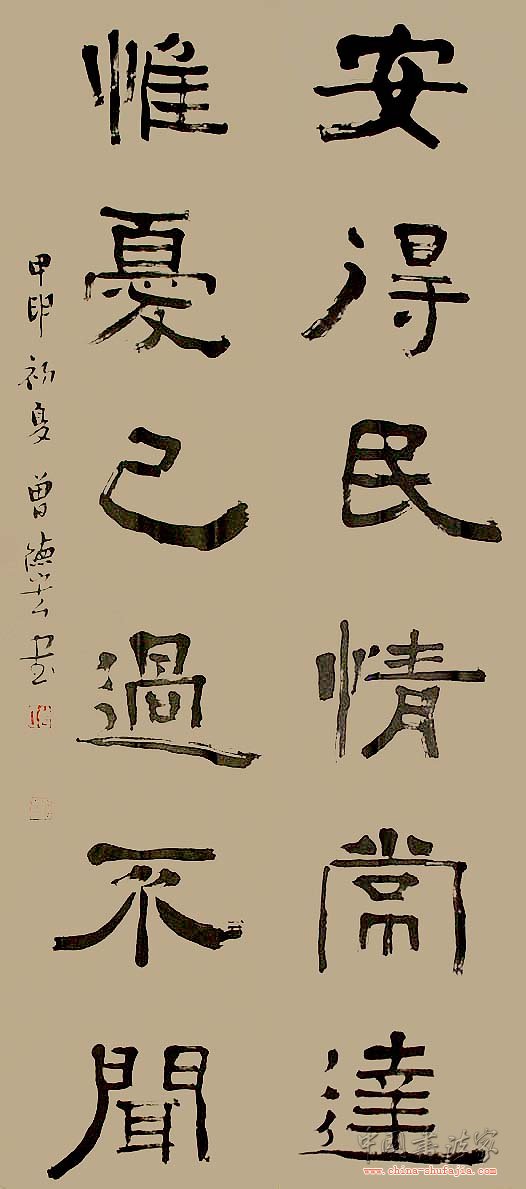 安得民情常達
惟憂己過不聞
甲申初夏曾德芸書
中国书法家
www.china-shufajia.com